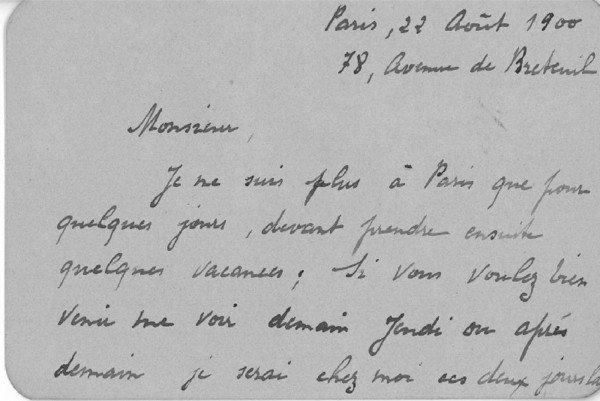 Paris, 22 Août 1900
78, Avenue de Breteuil
Monsieur,
Je ne suis plus à Paris que pour
quelques jours, devant prendre ensuite
quelques vacances; Si vous voulez bien
venir me voir demain Jeudi ou après
demain je serai chez moi ces deux jours là